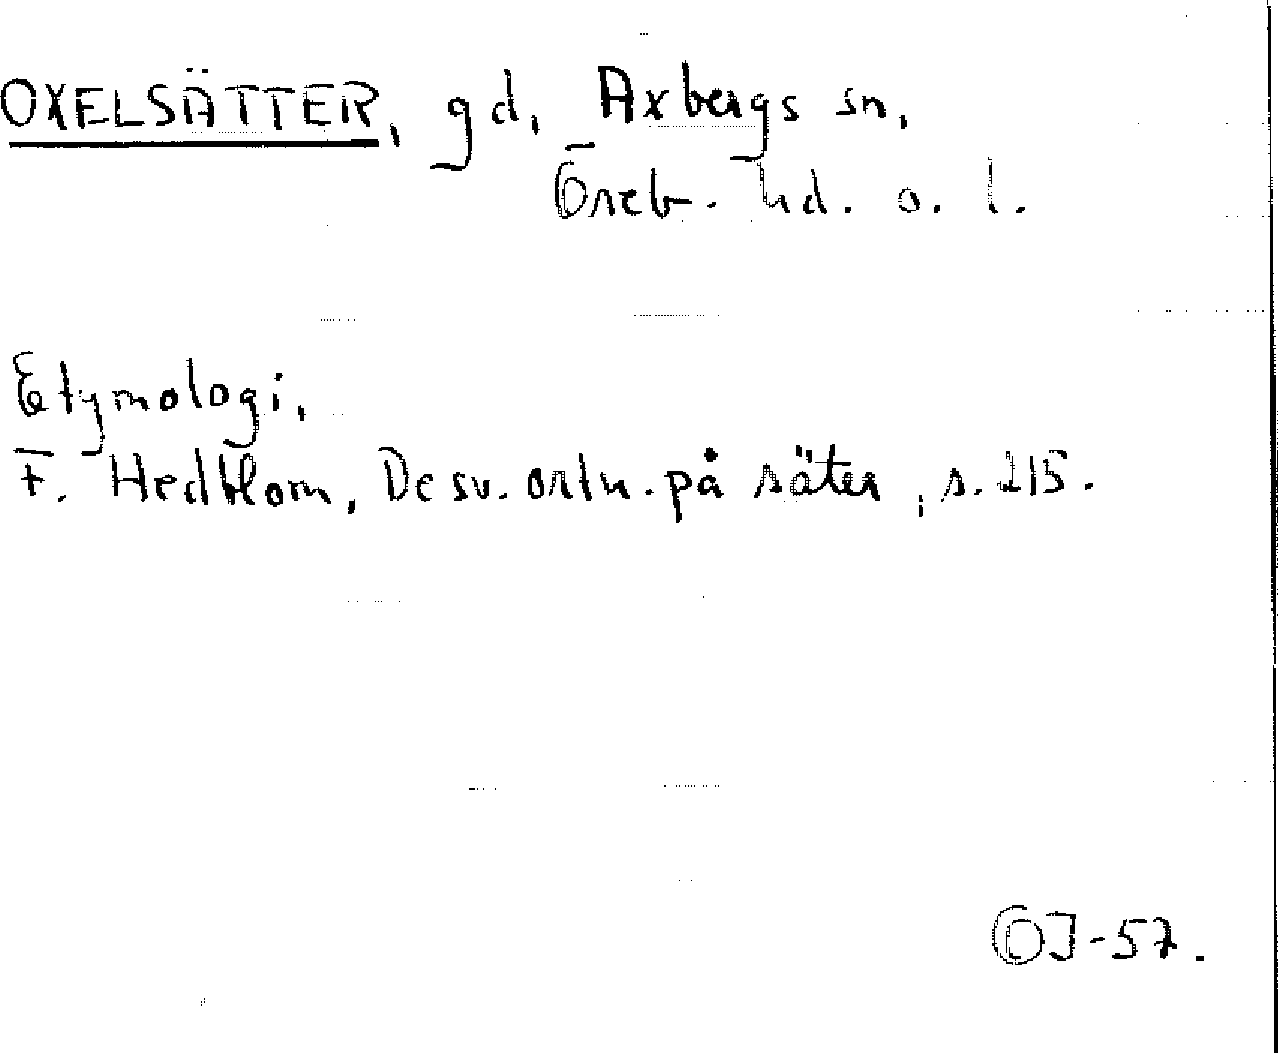 OXELSÄTTER, gd, Axbergs sn,
Öreb. hd. o. l.
Etymologi,
F. Hedblom, De sv. ortn. på säter, s. 215.
ÖJ-57.